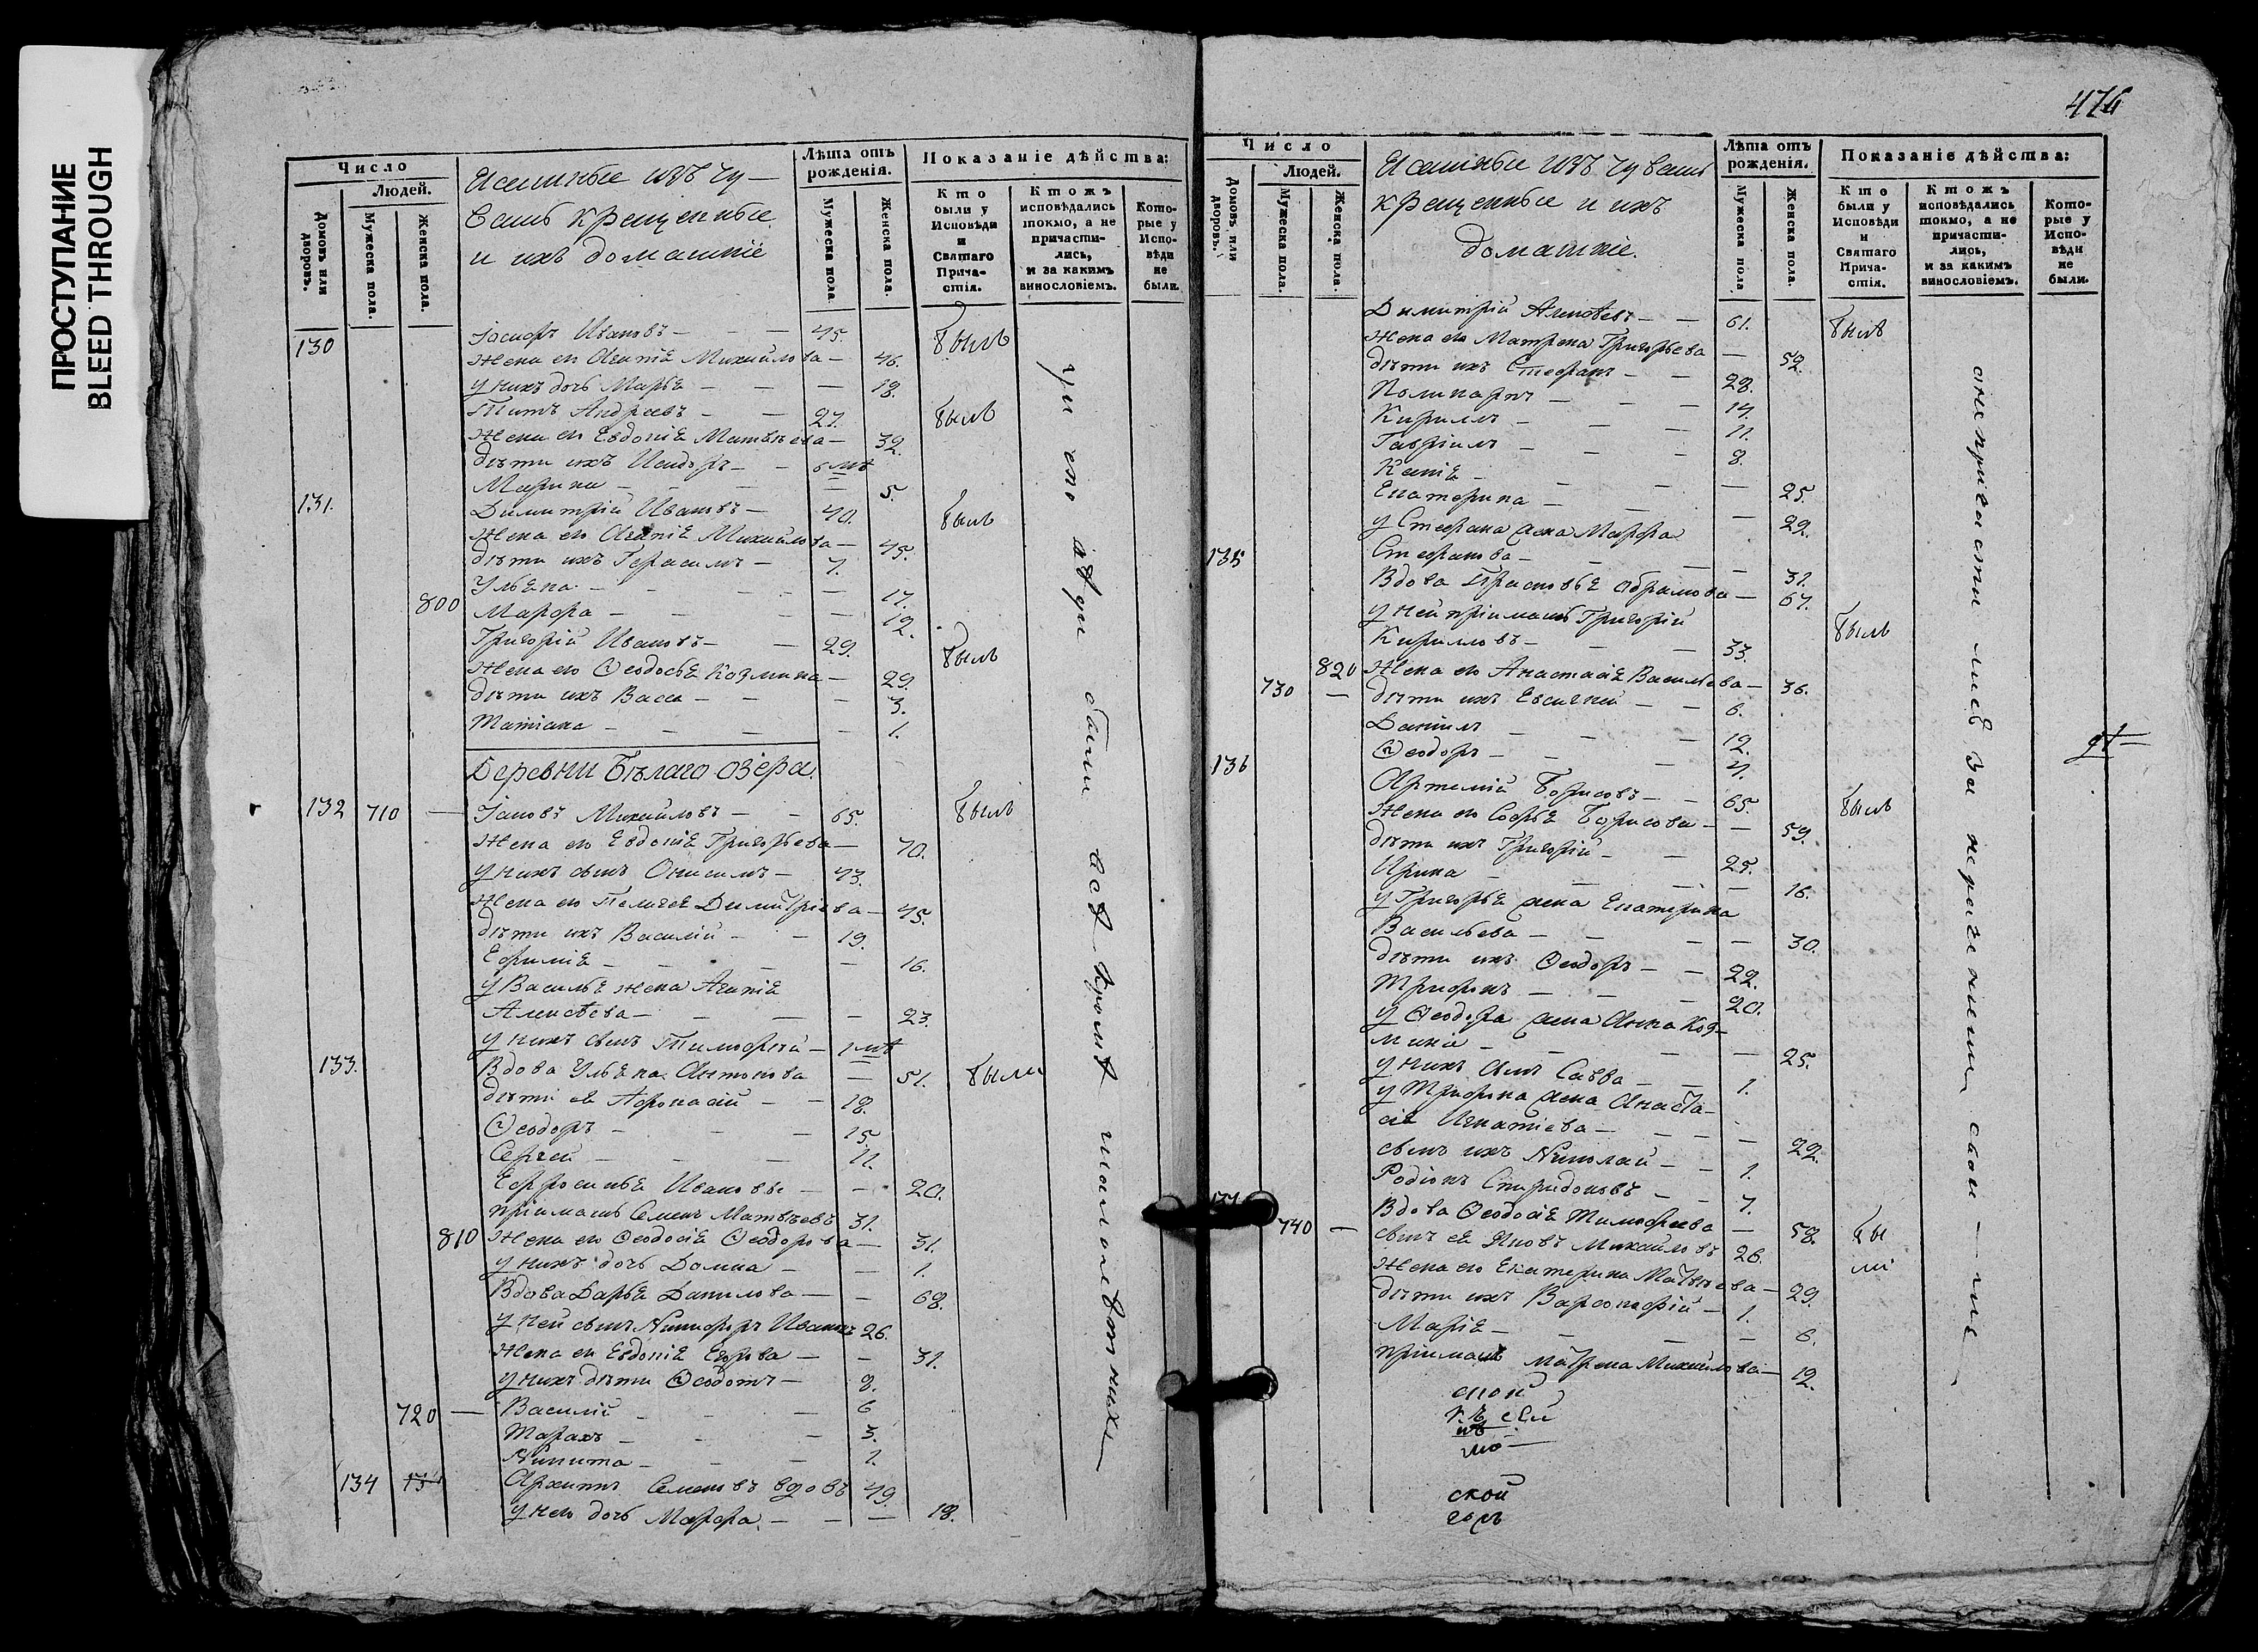 ПРОСТУПАНИЕ
BLEED THROUGH
Число
Людей.
Домовъ или дворовъ.
Мужеска пола.
Женска пола.
Исашные изъ чу-
вашъ крещенные
и ихъ домашніе
Лѣта отъ рожденія.
Мужеска пола.
Женска пола.
Показаніе дѣйства:
Кто были у Исповѣди и Святаго Причастія.
Ктожъ исповѣдались токмо, а не причастились, и за какимъ винословіемъ.
Которые у Исповѣди не были.
130 Іасифъ Ивановъ — 45. былъ
жена его Агапія Михайлова — 46.
у нихъ дочь Марья — 18.
Титъ Андреевъ — 27. былъ
жена его Евдокія Матвѣева — 32.
дѣти ихъ Исидоръ —
Марина — 5.
131. Димитрій Ивановъ — 40. былъ
жена его Агапія Михайлова — 45.
дѣти ихъ Герасимъ — 7.
Ульяна — 17.
800 Марфа — 12.
Григорій Ивановъ — 29. былъ
жена его Ѳеодосья Козмина — 29.
дѣти ихъ Васса — 3.
Татіана — 1.
Деревни Бѣлаго озера.
132 710 — Іаковъ Михайловъ — 65. былъ
жена его Евдокія Григорьева — 70.
у нихъ сынъ Онисимъ — 43.
жена его Пелагея Димитріева — 45.
дѣти ихъ Василій — 19.
Ефимія — 16.
у Василья жена Агапія
Алексѣева — 23.
у нихъ сынъ Тимофей —
133. Вдова Ульяна Антонова — 51. были
дѣти ея Афонасій — 18.
Ѳеодоръ — 15.
Сергей — 11.
Ефросинья Ивановы — 20.
пріимашъ Семенъ Матвѣевъ 31.
810 жена его Ѳеодосія Ѳеодорова — 31.
у нихъ дочь Домна — 1.
Вдова Дарья Данилова — 68.
у ней сынъ Никифоръ Ивановъ 26.
жена его Евдокія Егорова — 31.
у нихъ дѣти Ѳеодотъ — 8.
720 — Василій — 6
Тарахъ — 3.
Никита — 1.
134 Архипъ Семеновъ вдовъ 49.
у него дочь Марфа — 18.
были всѣ кромѣ малолѣтнихъ
476
Число
Людей.
Домовъ или дворовъ.
Мужеска пола.
Женска пола.
Исашные изъ чувашъ
крещенные и ихъ
домашніе.
Лѣта отъ рожденія.
Мужеска пола
Женска пола.
Показаніе дѣйства:
Кто были у Исповѣди и Святаго Причастія.
Ктожъ исповѣдались токмо, а не причастились, и за какимъ винословіемъ.
Которые у Исповѣди не были.
Димитрій Алексѣевъ — 61. былъ
жена его Матрена Григорьева — 52.
дѣти ихъ Стефанъ — 28.
Поликарпъ — 14.
Кириллъ — 11.
Гавріилъ — 8.
Ксенія — 25.
Екатерина — 22.
у Стефана жена Марфа
Стефанова — 31.
135 Вдова Прасковья Абрамова — 67.
у ней пріимашъ Григорій
Кирилловъ — 33. былъ
820 жена его Анастасія Васильева — 36.
730 — дѣти ихъ Евсигней — 6.
Даніилъ — 12.
Ѳеодоръ — 4.
136 Артемій Борисовъ — 65. былъ
жена его Софья Борисова — 59.
дѣти ихъ Григорій — 25.
Ирина — 16.
у Григорья жена Екатерина
Васильева — 30.
дѣти ихъ Ѳеодоръ — 22.
Трифонъ — 20.
у Ѳеодора жена Анна Коз-
мина — 25.
у нихъ сынъ Савва — 1.
у Трифона жена Анаста-
сія Игнатіева — 22.
сынъ ихъ Николай — 1.
Родіонъ Спиридоновъ — 7.
137 Вдова Ѳеодосія Тимофеева — 58. бы
740 — сынъ ея Яковъ Михайловъ 26. ли
жена его Екатерина Матвѣева — 29.
дѣти ихъ Варсонофій — 1.
Марія — 6.
пріимашъ Матрена Михайлова — 12.
ской